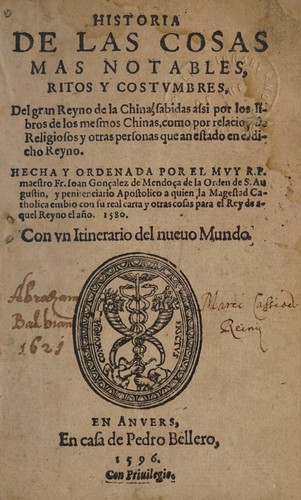 HISTORIA
DE LAS COSAS
MAS NOTABLES,
RITOS Y COSTVMBRES,
Del gran Reyno de la China, sabidas assi por los li-
bros de los mesmos Chinas, como por relacion de
Religiosos y otras personas que an estado en el di-
cho Reyno.
HECHA Y ORDENADA POR EL MVY R.P.
maestro Fr. Ioan Gonçalez de Mendoça de la Orden de S. Au-
gustin, y penitenciario Apostolico a quien la Magestad Ca-
tholica embio con su real carta y otras cosas para el Rey de a-
quel Reyno el año. 1580.
Con vn Itinerario del nueuo Mundo.
Abraham
1621
Marci
EN ANVERS,
En casa de Pedro Bellero,
1596.
Con Priuilegio.